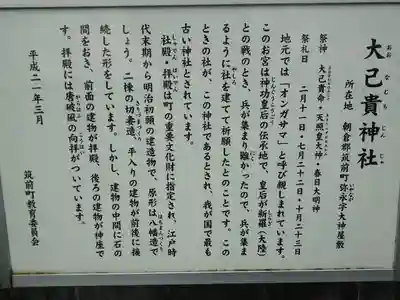 大己貴神社
おおなむちじんじゃ
所在地　朝倉郡筑前町弥永字大神屋敷
祭神　大己貴命・天照皇大神・春日大明神
祭礼日　二月十一日・七月二十二日・十月二十三日
地元では「オンガサマ」と呼び親しまれています。
このお宮は神功皇后の伝承地で、皇后が新羅（大陸）
との戦のとき、兵が集まり難かったので、兵が集ま
るように社を建てて祈願したとのことです。この
ときの社が、この神社であるとされ、我が国で最も
古い神社とされています。
社殿・拝殿は町の重要文化財に指定され、江戸時
代末期から明治初頭の建造物で、原形は八幡造で
しょう。二棟の切妻造、平入りの建物が前後に接
続した形をしています。しかし、建物の中間に石の
間をおき、前面の建物が拝殿、後ろの建物が神座で
す。拝殿には唐破風の向拝がついています。
平成二一年三月
筑前町教育委員会